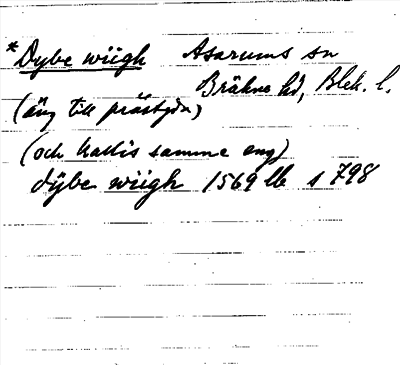 *Dybe wiigh Asarums sn
Bräkne hd, Blek. l.
(äng till prästgdn)
(och kallis samme eng)
dÿbe wiigh 1569 lb s 798